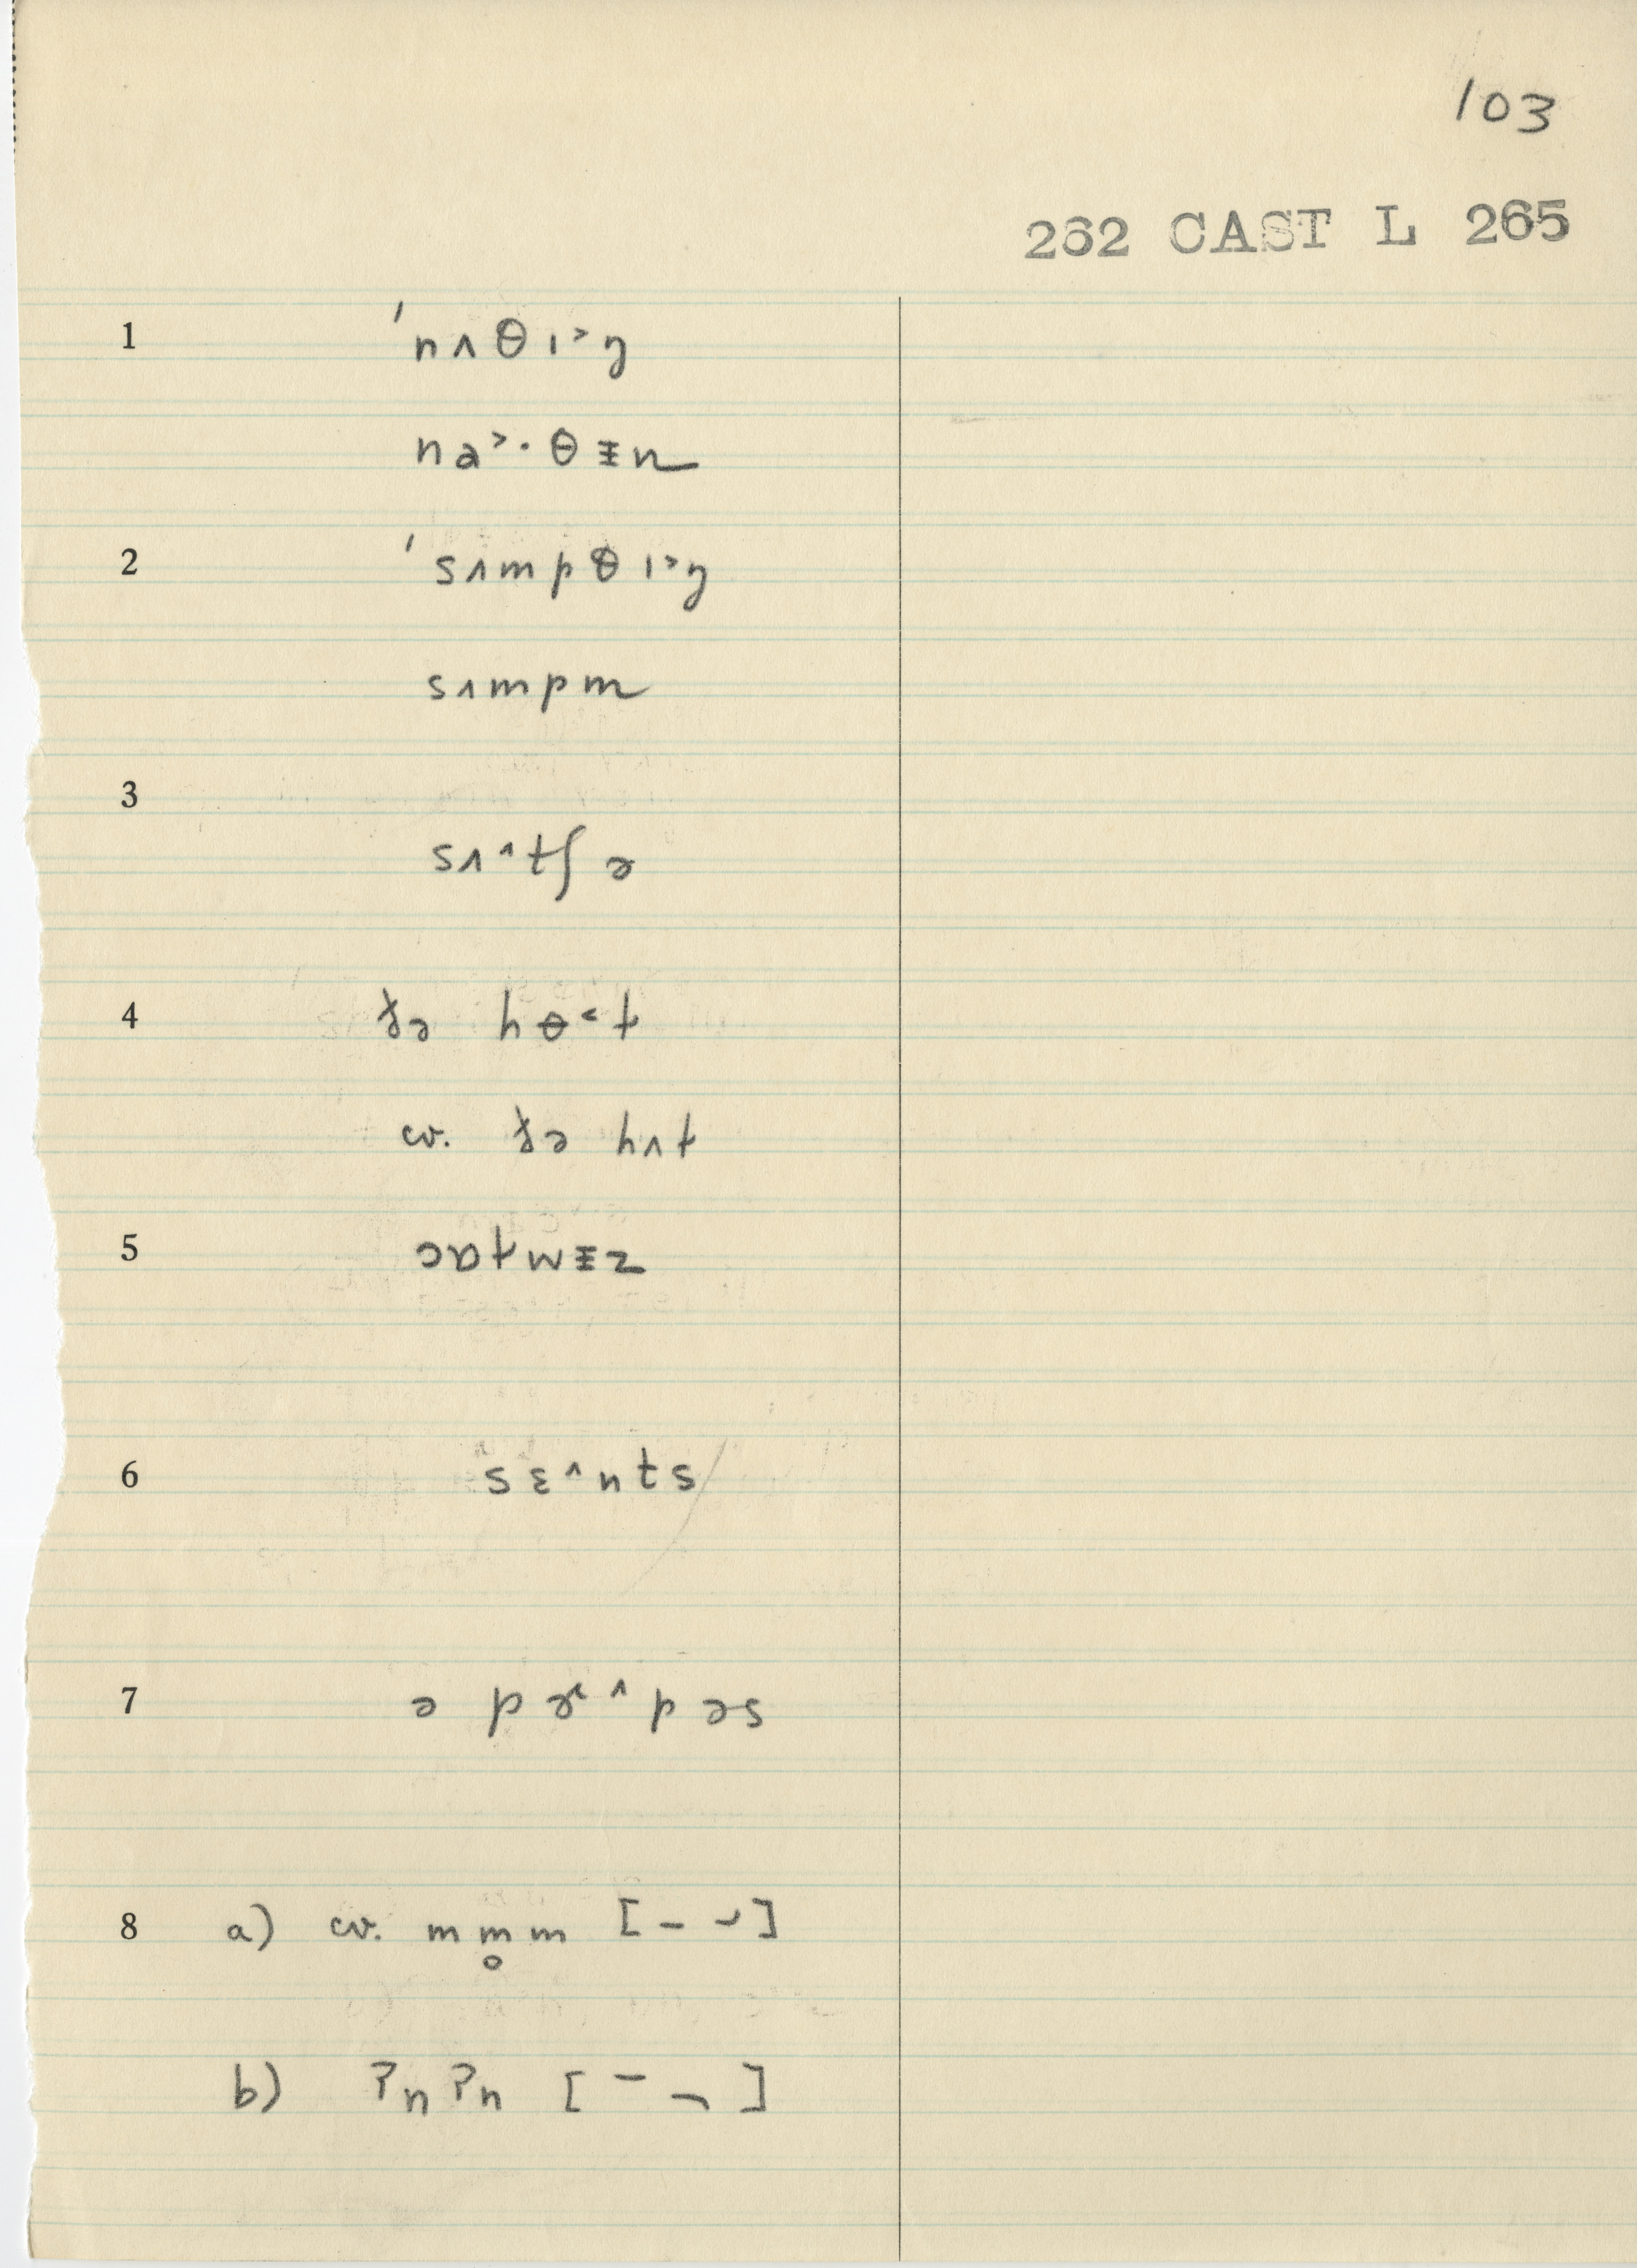 103
262 CAST L 265
1 ˈnʌθɪ˃ŋ
na˃·θɪn
2 ˈsʌmpθɪ˃ŋ
sʌmpm
3 sʌ˄tʃ ə
4 ðə hɵ˂t
cv. ðə hʌt
5 ɔɒtmɪz
6 sɛ˄nts
7 ə pɚ˄pəs
8 a) cv. mm̥m [– ⌣]
b) ʔnʔn [– ¬]